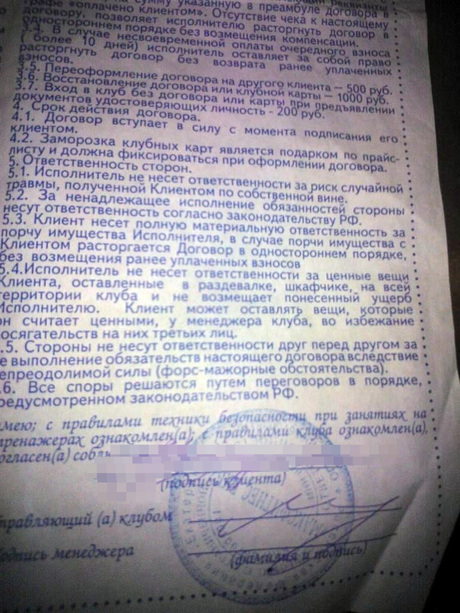 сумму указанную в преамбуле договора в
графе «оплачено клиентом». Отсутствие чека к настоящему
договору, позволяет исполнителю расторгнуть договор в
одностороннем порядке без возмещения компенсации.
3.4. В случае несвоевременной оплаты очередного взноса
( более 10 дней) исполнитель оставляет за собой право
расторгнуть договор без возврата ранее уплаченных
взносов.
3.5. Переоформление договора на другого клиента — 500 руб.
3.6. Восстановление договора или клубной карты — 1000 руб.
3.7. Вход в клуб без договора или карты при предъявлении
документов удостоверяющих личность - 200 руб.
4. Срок действия договора.
4.1. Договор вступает в силу с момента подписания его
клиентом.
4.2. Заморозка клубных карт является подарком по прайс-
листу и должна фиксироваться при оформлении договора.
5. Ответственность сторон.
5.1. Исполнитель не несет ответственности за риск случайной
травмы, полученной Клиентом по собственной вине.
5.2. За ненадлежащее исполнение обязанностей стороны
несут ответственность согласно законодательству РФ.
5.3. Клиент несет полную материальную ответственность за
порчу имущества Исполнителя, в случае порчи имущества с
Клиентом расторгается Договор в одностороннем порядке,
без возмещения ранее уплаченных взносов
5.4.Исполнитель не несет ответственности за ценные вещи
Клиента, оставленные в раздевалке, шкафчике, на всей
территории клуба и не возмещает понесенный ущерб
Исполнителю. Клиент может оставлять вещи, которые
он считает ценными, у менеджера клуба, во избежание
посягательств на них третьих лиц.
5.5. Стороны не несут ответственности друг перед другом за
не выполнение обязательств настоящего договора вследствие
непреодолимой силы (форс-мажорные обстоятельства).
.6. Все споры решаются путем переговоров в порядке,
предусмотренном законодательством РФ.
имею; с правилами техники безопасности при занятиях на
тренажерах ознакомлен(а); с правилами клуба ознакомлен(а),
согласен(а) собл
(подпись клиента)
правляющий (а) клубом
подпись менеджера
(фамилия и подпись)